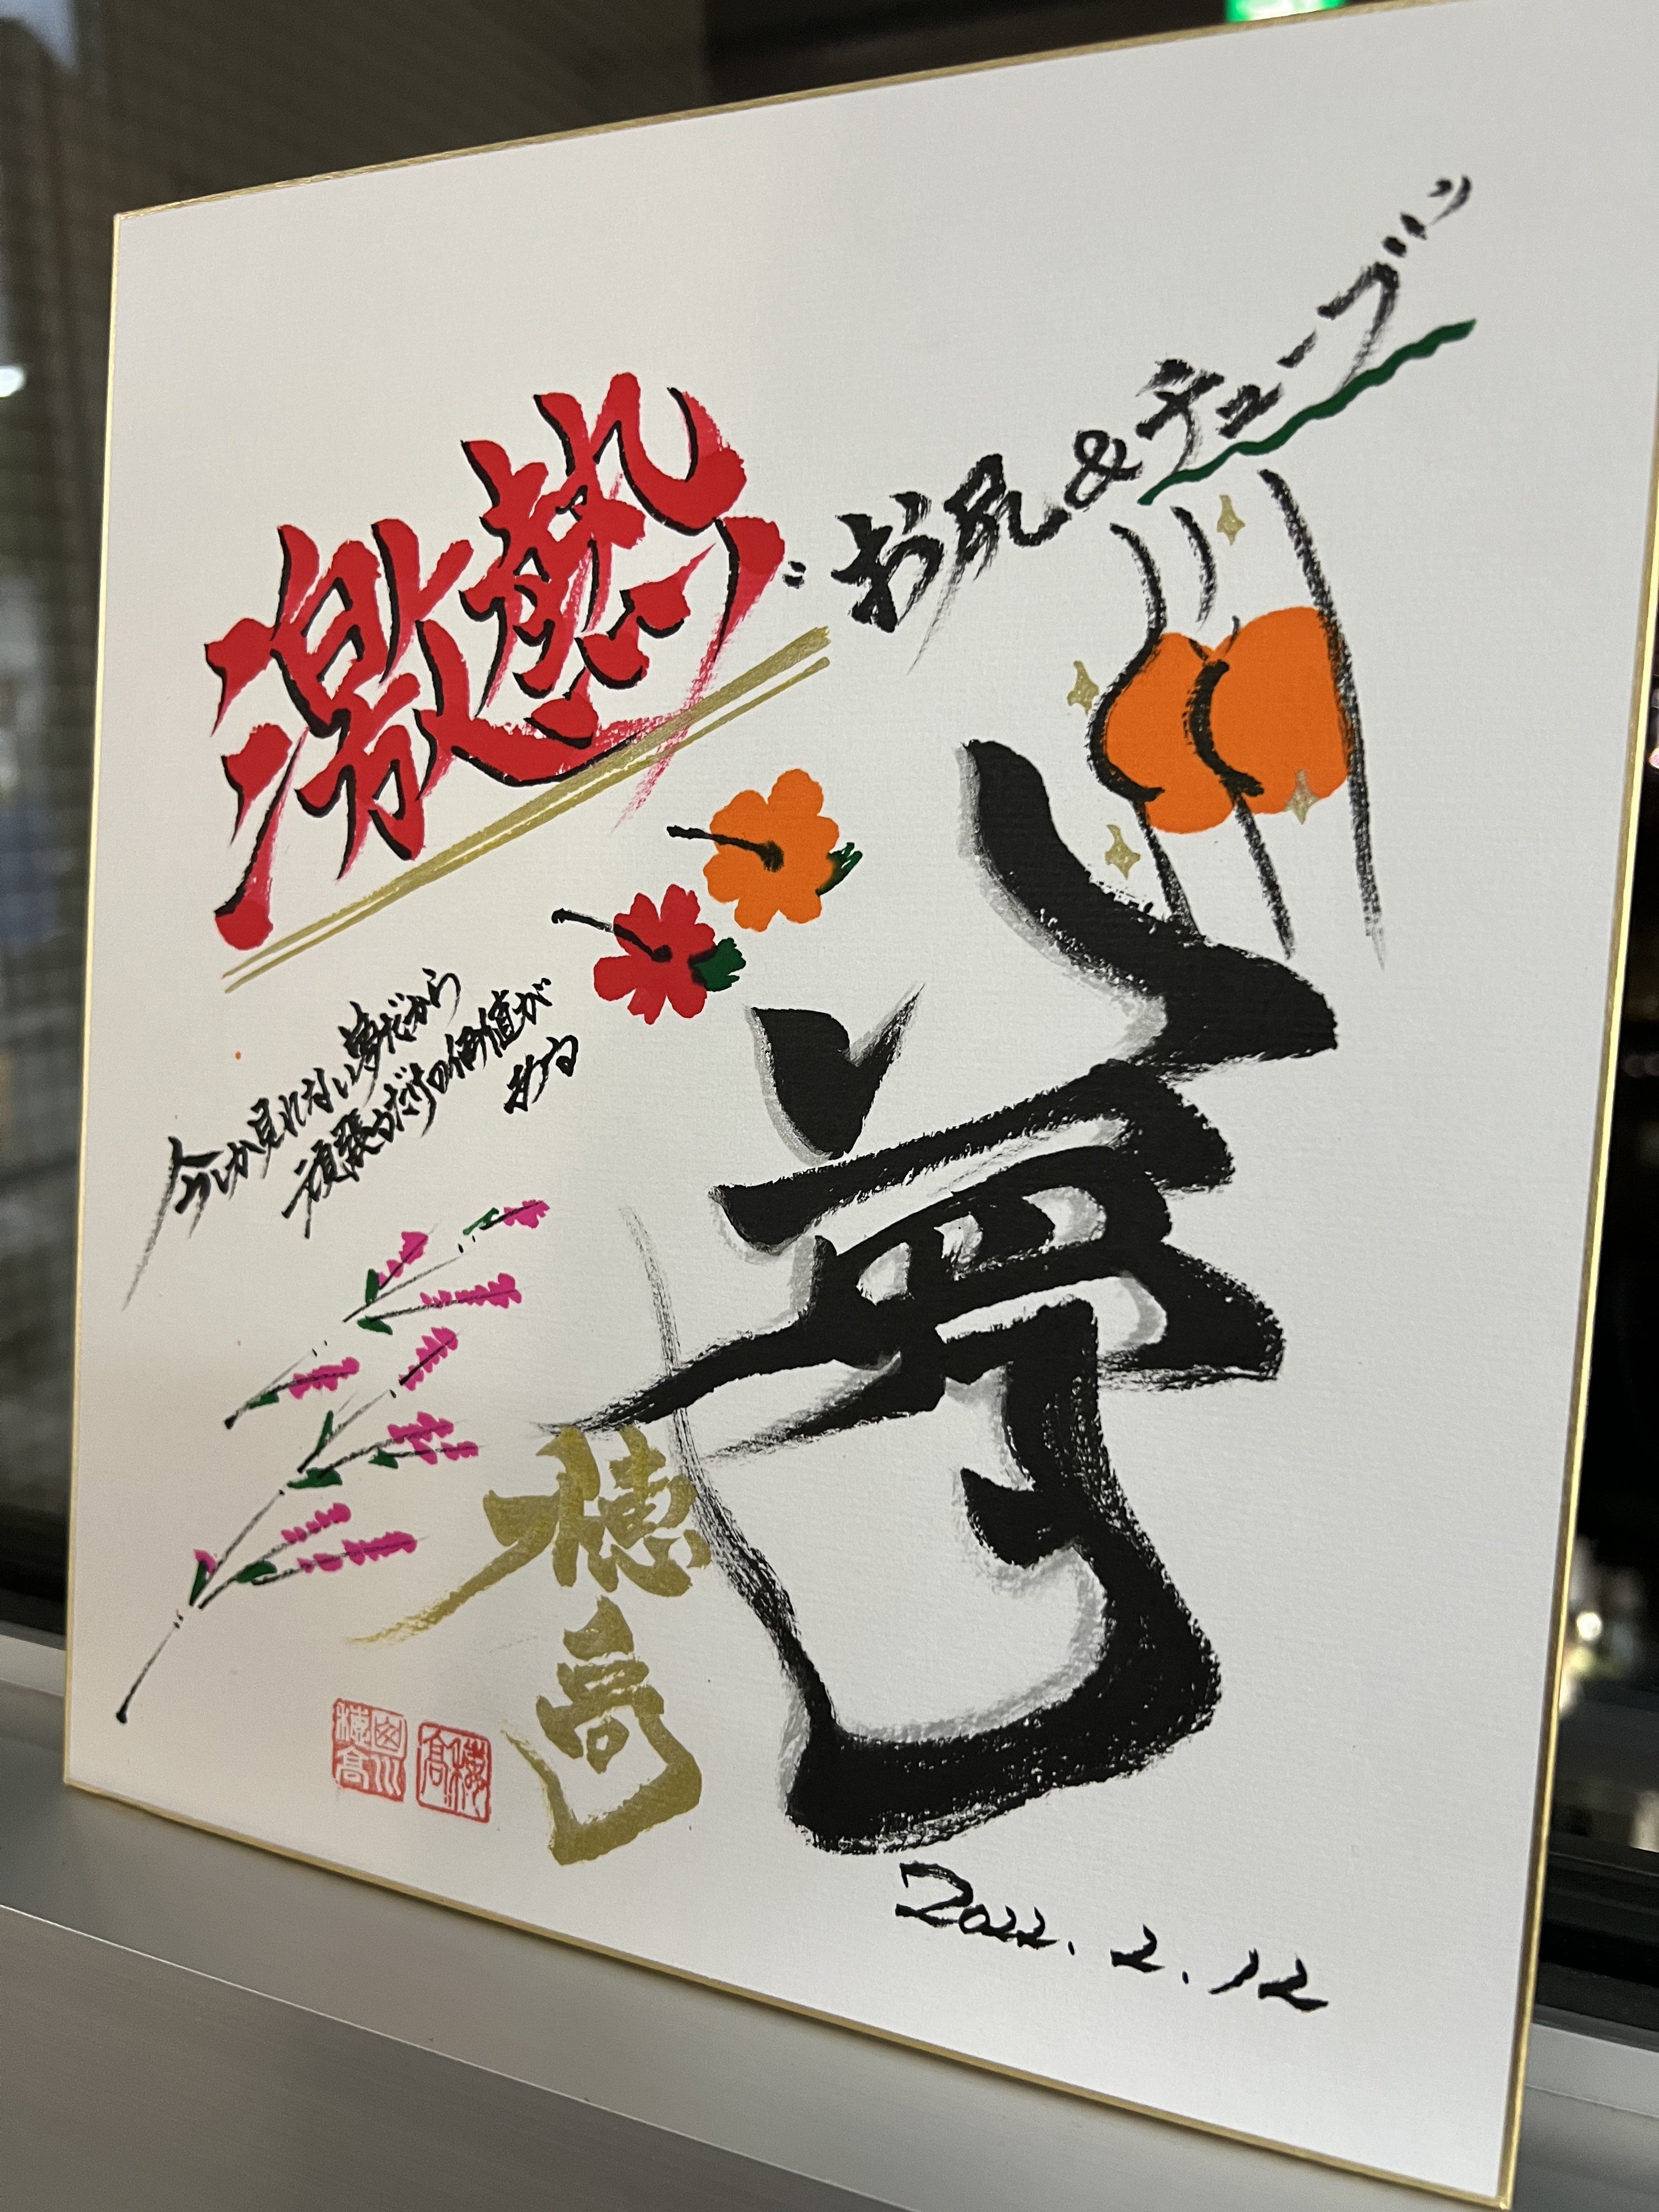 激熱!!
お尻&チューブ!!
夢
今しか見れない夢だから
頑張るだけの価値が
ある
穂高
2022.2.12